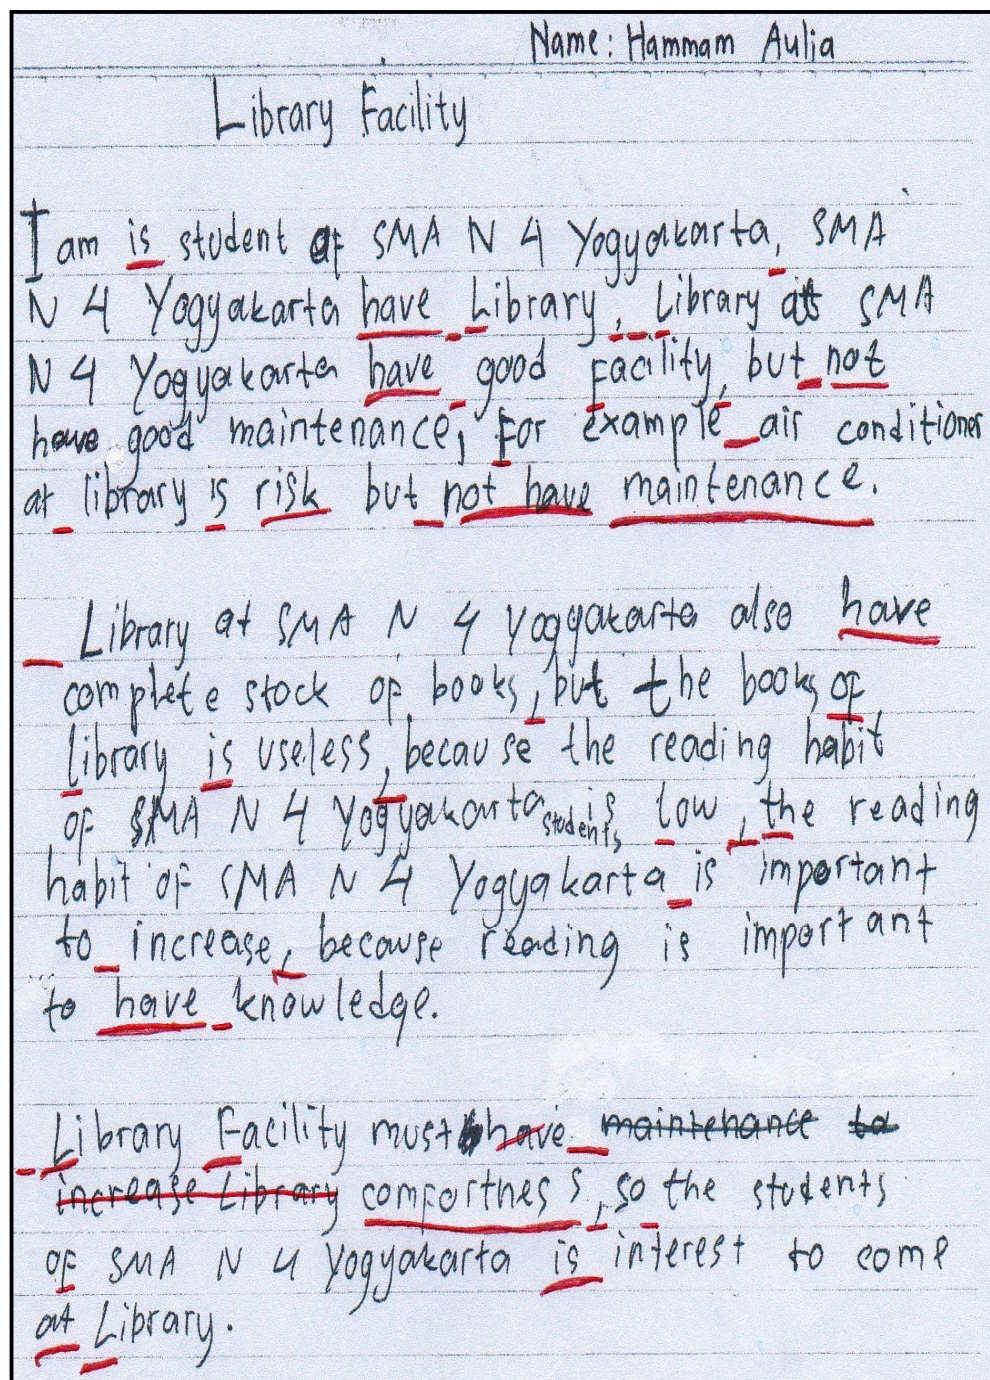 Name: Hammam Aulia
Library Facility
I am is student of SMA N 4 Yogyakarta, SMA
N 4 Yogyakarta have Library, Library at SMA
N 4 Yogyakarta have good Facility, but not
have good maintenance, For example air conditioner
at library is risk but not have maintenance.
Library at SMA N 4 Yogyakarta also have
complete stock of books, but the books of
library is useless, because the reading habit
of SMA N 4 Yogyakarta students is low, the reading
habit of SMA N 4 Yogyakarta is important
to increase, because reading is important
to have knowledge.
Library Facility must have maintenance to
increase Library comfortness, so the students
of SMA N 4 Yogyakarta is interest to come
at Library.